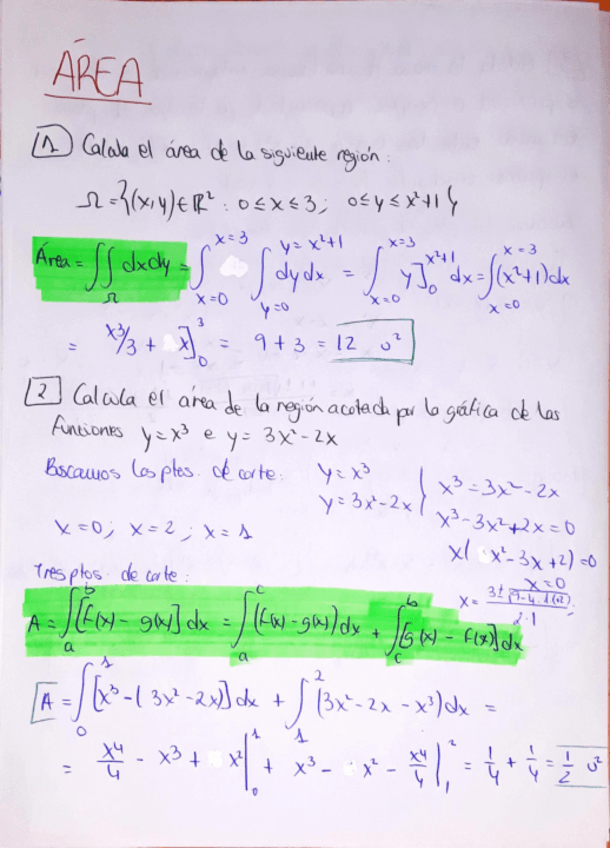 ÁREA
1 Calcula el área de la siguiente región:
Ω = {(x,y) ∈ ℝ² : 0 ≤ x ≤ 3; 0 ≤ y ≤ x²+1}
Área = ∬_Ω dxdy = ∫_{x=0}^{x=3} ∫_{y=0}^{y=x²+1} dy dx = ∫_{x=0}^{x=3} y]_0^{x²+1} dx = ∫_{x=0}^{x=3} (x²+1) dx
= x³/3 + x]_0^3 = 9 + 3 = 12 u²
2 Calcula el área de la región acotada por la gráfica de las
funciones y = x³ e y = 3x² - 2x
Buscamos los ptos. de corte: y = x³
y = 3x² - 2x } x³ = 3x² - 2x
x³ - 3x² + 2x = 0
x=0; x=2; x=1 x( x² - 3x + 2) = 0
x=0
Tres ptos. de corte: x = 3±√9-4·1(2) / 2·1
A = ∫_a^b [f(x) - g(x)] dx = ∫_a^c (f(x) - g(x)) dx + ∫_c^b [g(x) - f(x)] dx
A = ∫_0^1 [x³ - (3x² - 2x)] dx + ∫_1^2 (3x² - 2x - x³) dx =
= x⁴/4 - x³ + x² |_0^1 + x³ - x² - x⁴/4 |_1^2 = 1/4 + 1/4 = 1/2 u²